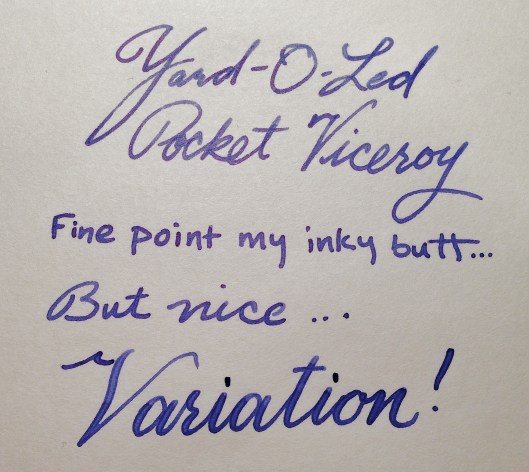 Yard-O-Led
Pocket Viceroy
Fine point my inky butt...
But nice ...
Variation!